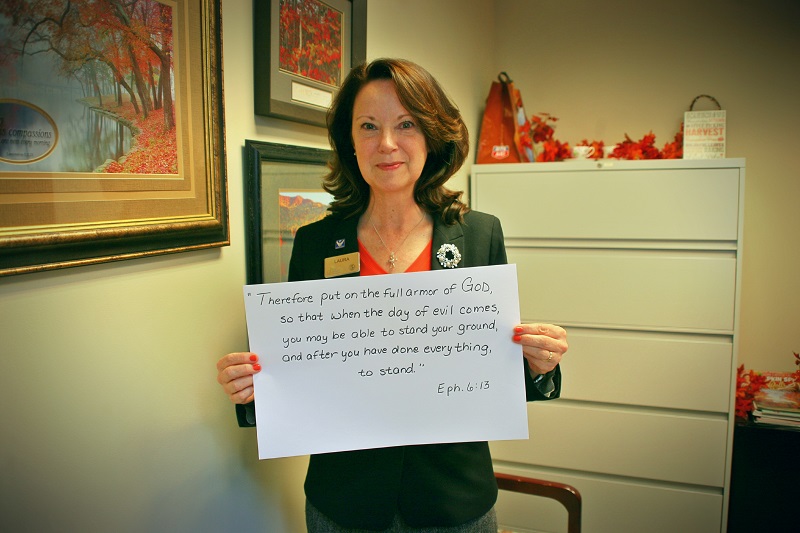 compassions
LAURA
HARVEST
"Therefore put on the full armor of GOD,
so that when the day of evil comes,
you may be able to stand your ground,
and after you have done everything,
to stand."
Eph. 6:13